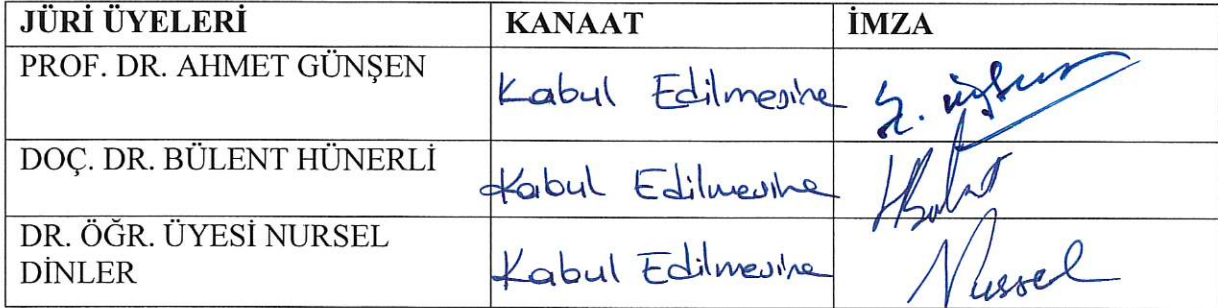 JÜRİ ÜYELERİ KANAAT İMZA
PROF. DR. AHMET GÜNŞEN Kabul Edilmesine
DOÇ. DR. BÜLENT HÜNERLİ Kabul Edilmesine
DR. ÖĞR. ÜYESİ NURSEL
DİNLER Kabul Edilmesine Nursel